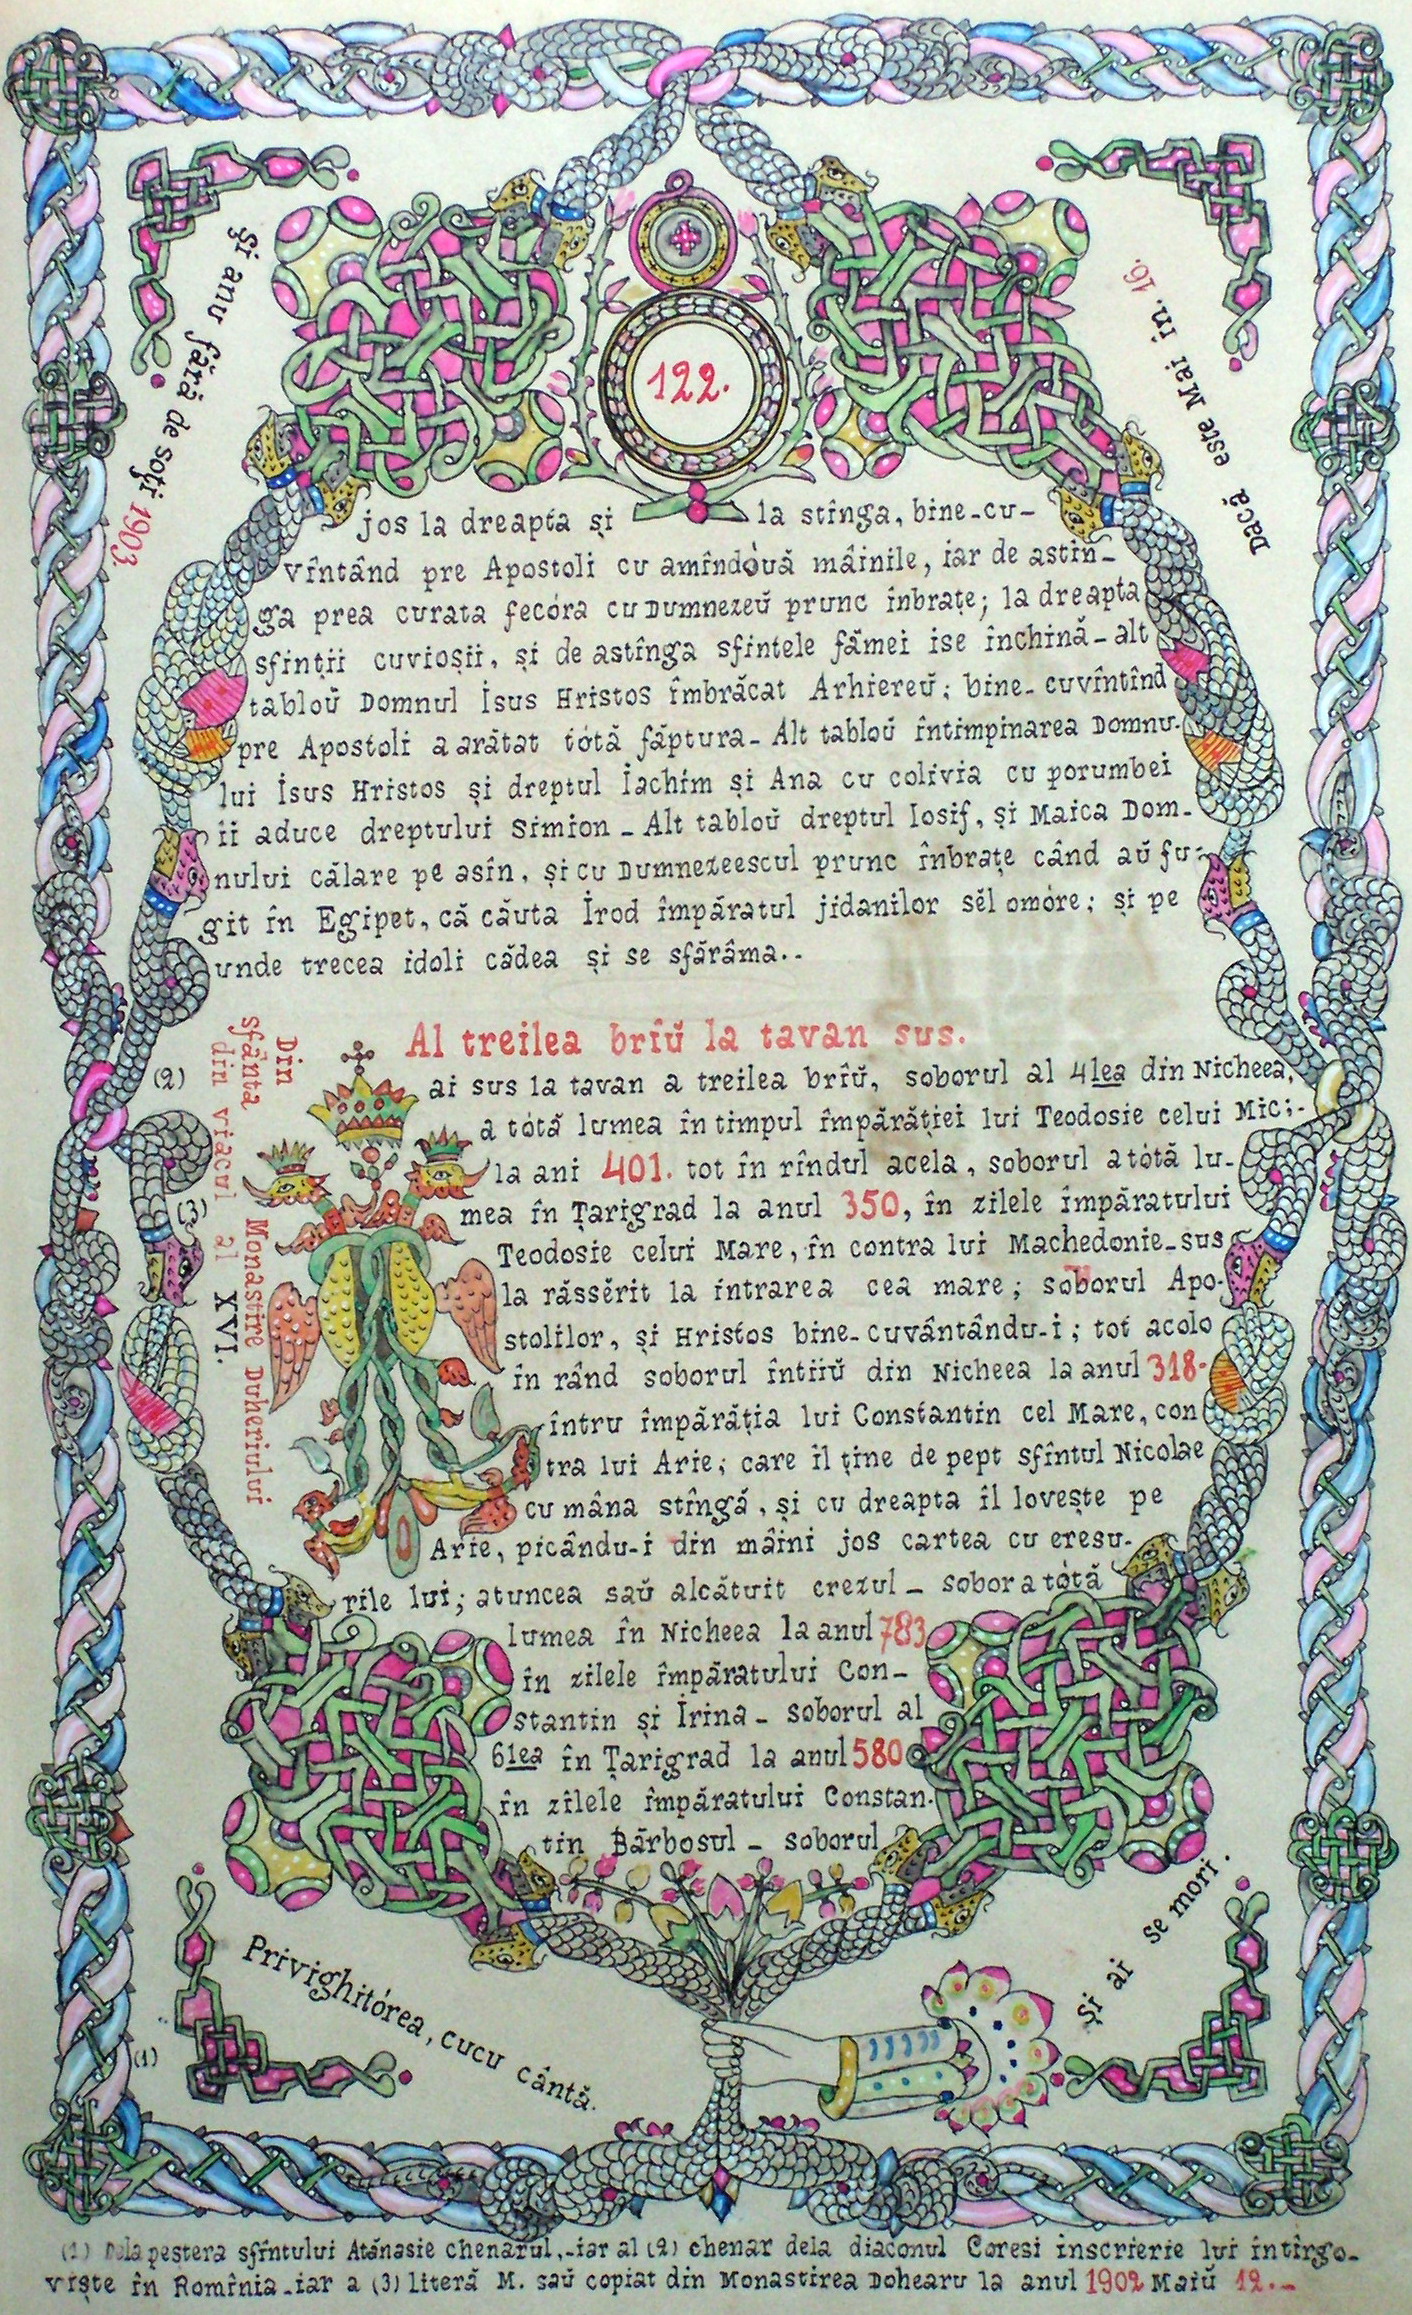 122.
Și anu fără de soți 1903.
Dacă este Mai în. 16.
jos la dreapta și la stînga, bine-cu-
vîntând pre Apostoli cu amîndòuă mâinile, iar de astîn-
ga prea curata fecóra cu Dumnezeŭ prunc înbrațe; la dreapta
sfinții cuvioșii, și de astînga sfintele fămei ise închină - alt
tabloŭ Domnul Isus Hristos îmbrăcat Arhiereŭ; bine-cuvîntînd
pre Apostoli a arătat tótă făptura - Alt tabloŭ întimpinarea Domnu-
lui Isus Hristos și dreptul Iachim și Ana cu colivia cu porumbei
îi aduce dreptului Simion - Alt tabloŭ dreptul Iosif, și Maica Dom-
nului călare pe asîn, și cu Dumnezeescul prunc înbrațe când aŭ fu-
git în Egipet, că căuta Irod împăratul jidanilor sĕl omóre; și pe
unde trecea idoli cădea și se sfărâma..
Al treilea brîŭ la tavan sus.
Din
sfânta Monastire Duheriului
din viacul al XVI.
(2)
(3)
ai sus la tavan a treilea brîŭ, soborul al 4lea din Nicheea,
a tótă lumea în timpul împărăției lui Teodosie celui Mic;-
la ani 401. tot în rîndul acela, soborul a tótă lu-
mea în Țarigrad la anul 350, în zilele împăratului
Teodosie celui Mare, în contra lui Machedonie - sus
la răssĕrit la intrarea cea mare; soborul Apo-
stolilor, și Hristos bine-cuvântându-i; tot acolo
în rând soborul întiiŭ din Nicheea la anul 318-
întru împărăția lui Constantin cel Mare, con
tra lui Arie; care îl ține de pept sfîntul Nicolae
cu mâna stîngă, și cu dreapta îl lovește pe
Arie, picându-i din mâini jos cartea cu eresu-
rile lui; atuncea saŭ alcătuit crezul - sobor a tótă
lumea în Nicheea la anul 783
în zilele împăratului Con-
stantin și Irina - soborul al
6lea în Țarigrad la anul 580
în zilele împăratului Constan-
tin Bărbosul - soborul
Privighitórea, cucu cântă.
Și ai se mori.
(1)
(1) Dela pestera sfîntului Atănasie chenarul,-iar al (2) chenar dela diaconul Coresi inscrierie lui intîrgo-
viște în Romînia - iar a (3) literă M. saŭ copiat din Monastirea Dohearu la anul 1902 Maiŭ 12.-